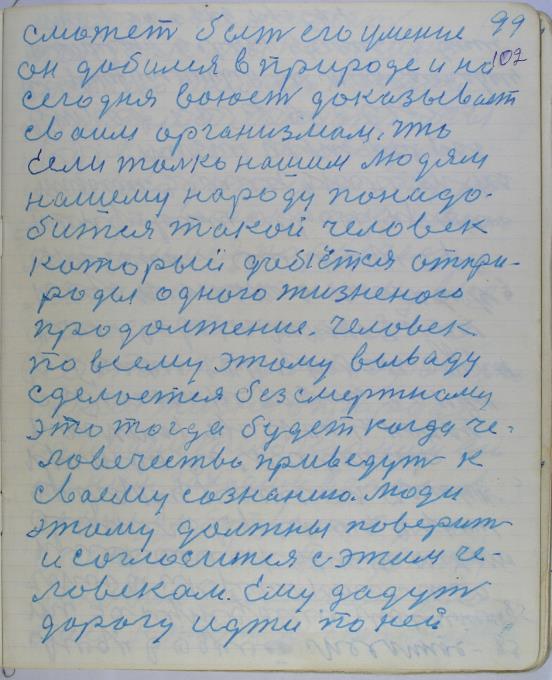 99
102
сможет быт его умение
он добился в природе и на
сегодня воюет доказывает
своим организмам, что
Если толкь нашим людям
нашему народу понадо-
бится такой человек
который добьётся отпри-
роды одного жизненого
продолжение. Человек
по всему этому вываду
сделоется безсмертному
это тогда будет когда че-
ловечество приведут к
своему сознанию. Люди
этому должны поверит
и согласится с этим че-
ловекам. Ему дадут
дорогу идти по ней